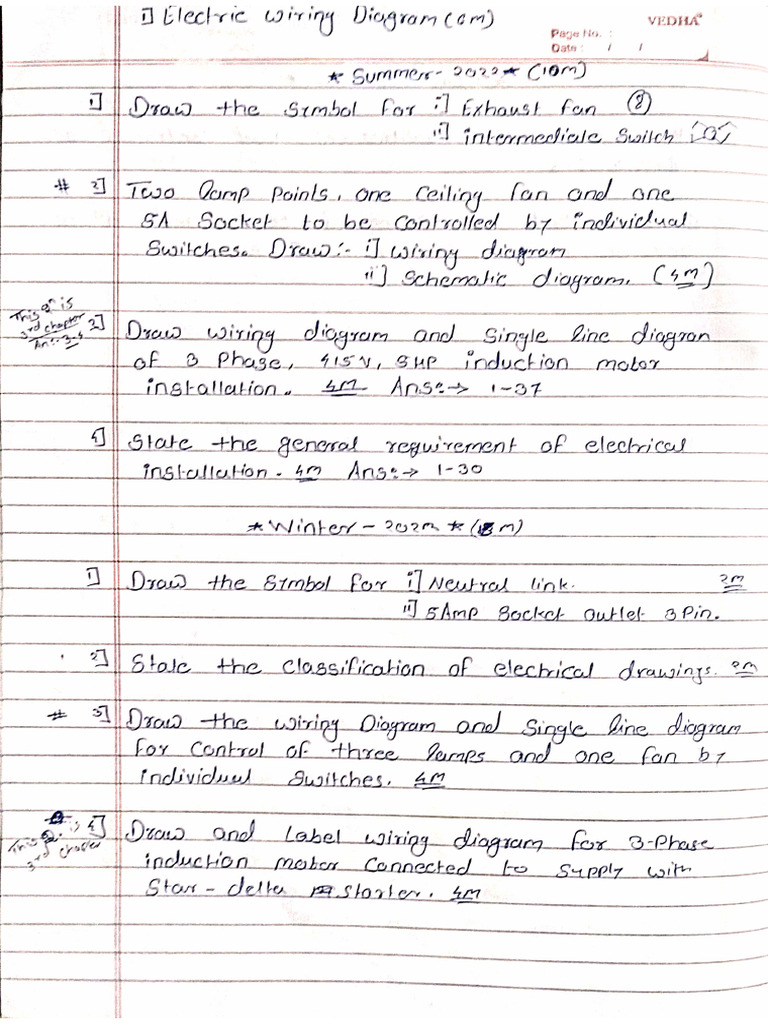 1] Electric wiring Diagram (6m)
VEDHA®
Page No. :
Date : / /
* Summer - 2022 * (10m)
1] Draw the Symbol for i] Exhaust fan
ii] intermediate Switch
# 2] Two lamp points, one ceiling fan and one
5A Socket to be controlled by individual
Switches. Draw:- i] wiring diagram
ii] Schematic diagram. (4m)
This Qn is
3rd chapter
Ans:- 3-4
3] Draw wiring diagram and Single line diagram
of 3 Phase, 415V, 5HP induction motor
installation. 4M Ans:→ 1-37
4] State the general requirement of electrical
installation. 4m Ans:→ 1-30
* Winter - 2022 * (m)
1] Draw the Symbol for i] Neutral link. 2m
ii] 5Amp Socket outlet 3Pin.
2] State the classification of electrical drawings. 2m
# 3] Draw the wiring Diagram and Single line diagram
for control of three lamps and one fan by
individual Switches. 4M
This Q. is
3rd chapter
4] Draw and Label wiring diagram for 3-Phase
induction motor connected to supply with
Star - delta starter. 4M